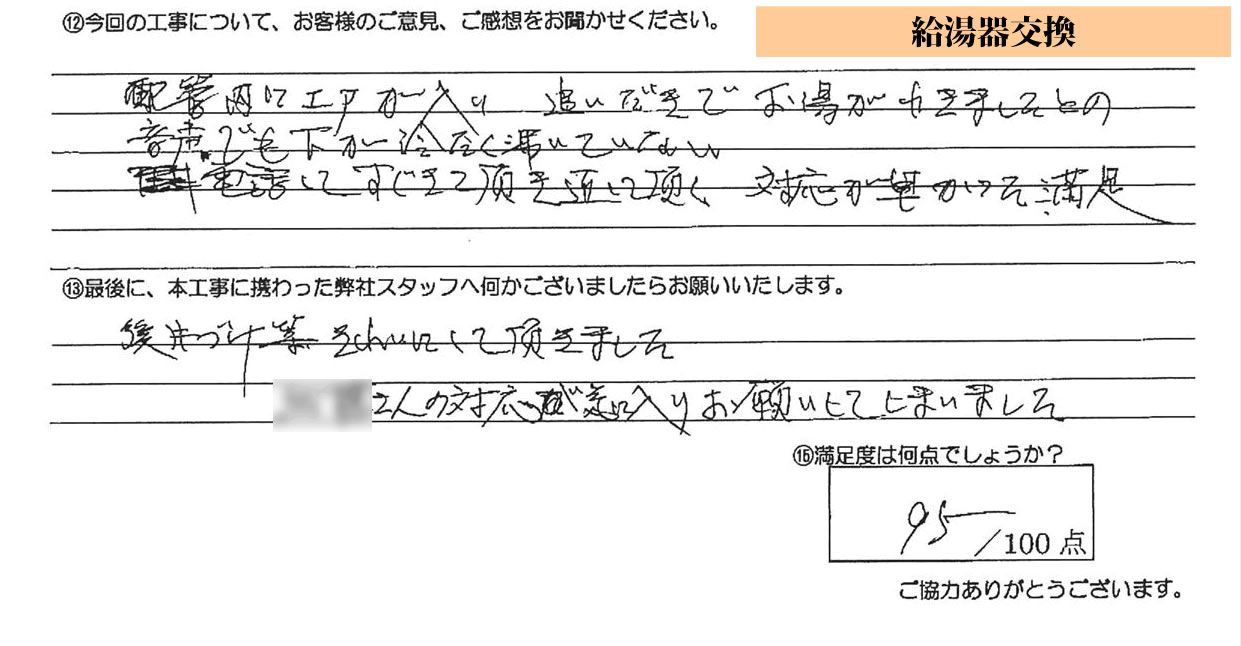 ⑫今回の工事について、お客様のご意見、ご感想をお聞かせください。
給湯器交換
配管内にエアが入り 追いだきで お湯がわきましたとの
音声でも下が冷たく沸いていない
電話してすぐきて頂き直して頂く 対応が早かった 満足
⑬最後に、本工事に携わった弊社スタッフへ何かございましたらお願いいたします。
後片づけ等きれいにして頂きました
さんの対応が気に入りお願いしてしまいました
⑮満足度は何点でしょうか?
95/100 点
ご協力ありがとうございます。